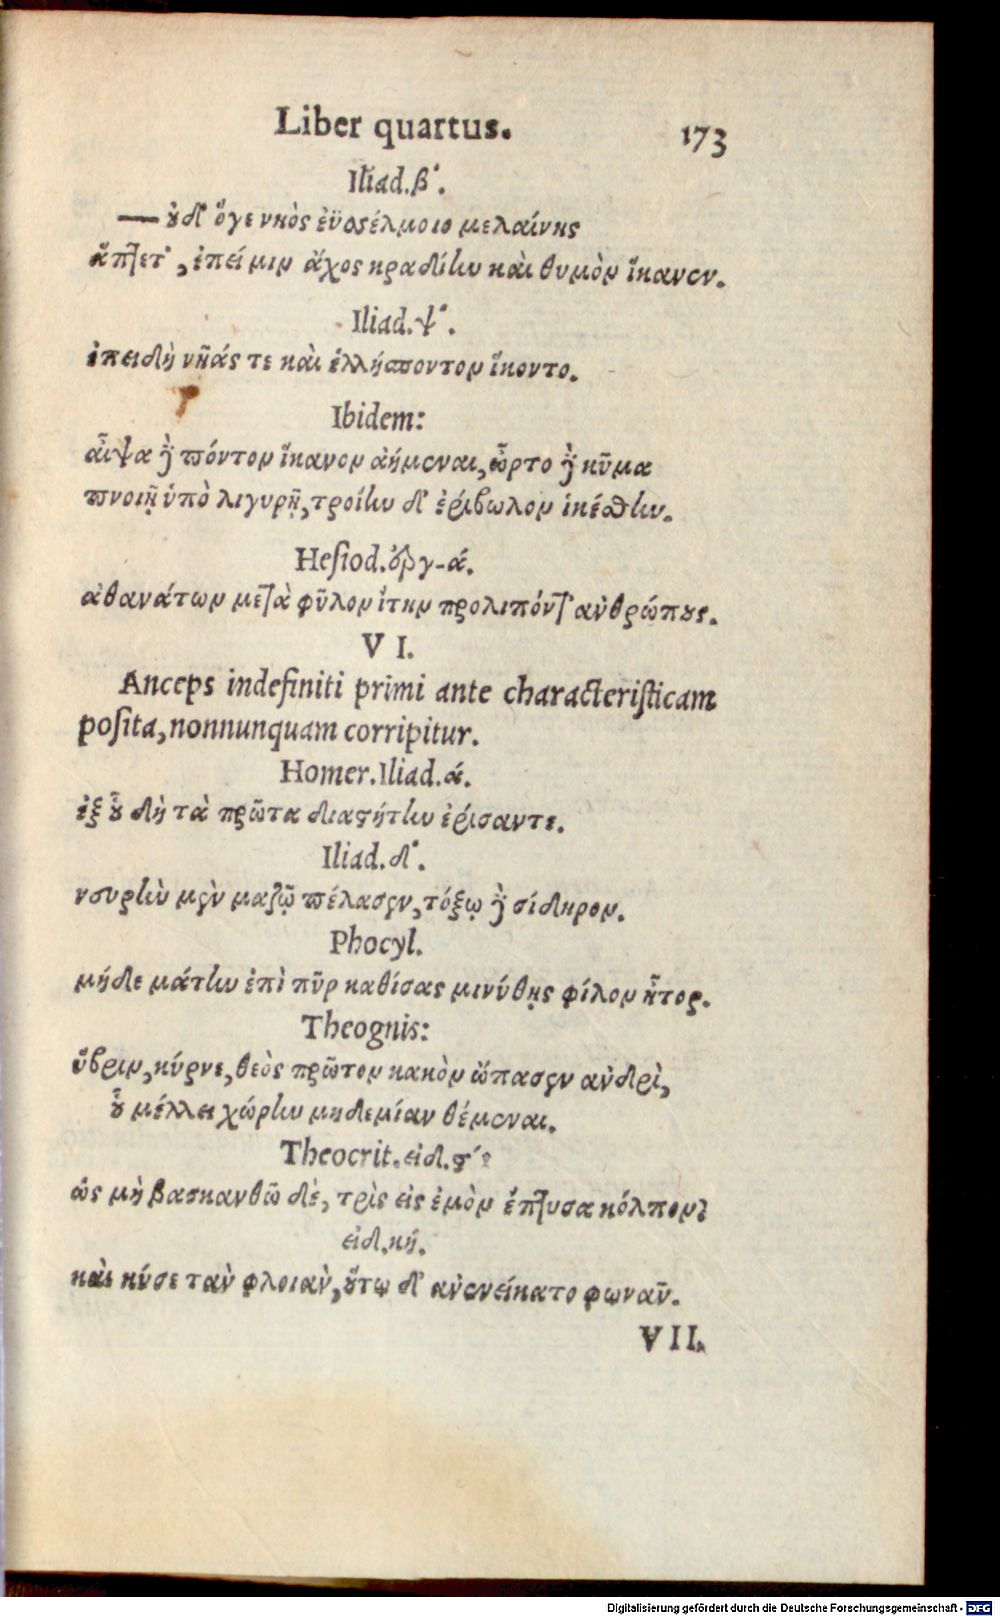 Liber quartus. 173
Iliad. β΄.
— οὐδ᾽ ὅγε νηὸς ἐϋσσέλμοιο μελαίνης
ἅπτετ᾽, ἐπεί μιν ἄχος κραδίην καὶ θυμὸν ἵκανεν.
Iliad. ψ΄.
ἐπειδὴ νῆάς τε καὶ ἑλλήσποντον ἵκοντο.
Ibidem:
αἶψα δὲ πόντον ἵκανον ἀήμεναι, ὦρτο δὲ κῦμα
πνοιῇ ὑπὸ λιγυρῇ, τροίην δ᾽ ἐρίβωλον ἱκέσθην.
Hesiod. ἐργ-ά.
ἀθανάτων μετὰ φῦλον ἴτην προλιπόντ᾽ ἀνθρώπους.
VI.
Anceps indefiniti primi ante characteristicam
posita, nonnunquam corripitur.
Homer. Iliad. ά.
ἐξ οὗ δὴ τὰ πρῶτα διαστήτην ἐρίσαντε.
Iliad. δ΄.
νευρὴν μὲν μαζῷ πέλασεν, τόξῳ δὲ σίδηρον.
Phocyl.
μήδε μάτην ἐπὶ πῦρ καθίσας μινύθῃς φίλον ἦτορ.
Theognis:
ὕβριν, κύρνε, θεὸς πρῶτον κακὸν ὤπασεν ἀνδρὶ,
οὗ μέλλει χώρην μηδεμίαν θέμεναι.
Theocrit. εἰδ. ϛ΄:
ὡς μὴ βασκανθῶ δὲ, τρὶς εἰς ἐμὸν ἔπτυσα κόλπον:
εἰδ. κή.
καὶ κύσε τὰν φλοιὰν, οὕτω δ᾽ ἀνενείκατο φωνάν.
VII.
Digitalisierung gefördert durch die Deutsche Forschungsgemeinschaft - DFG